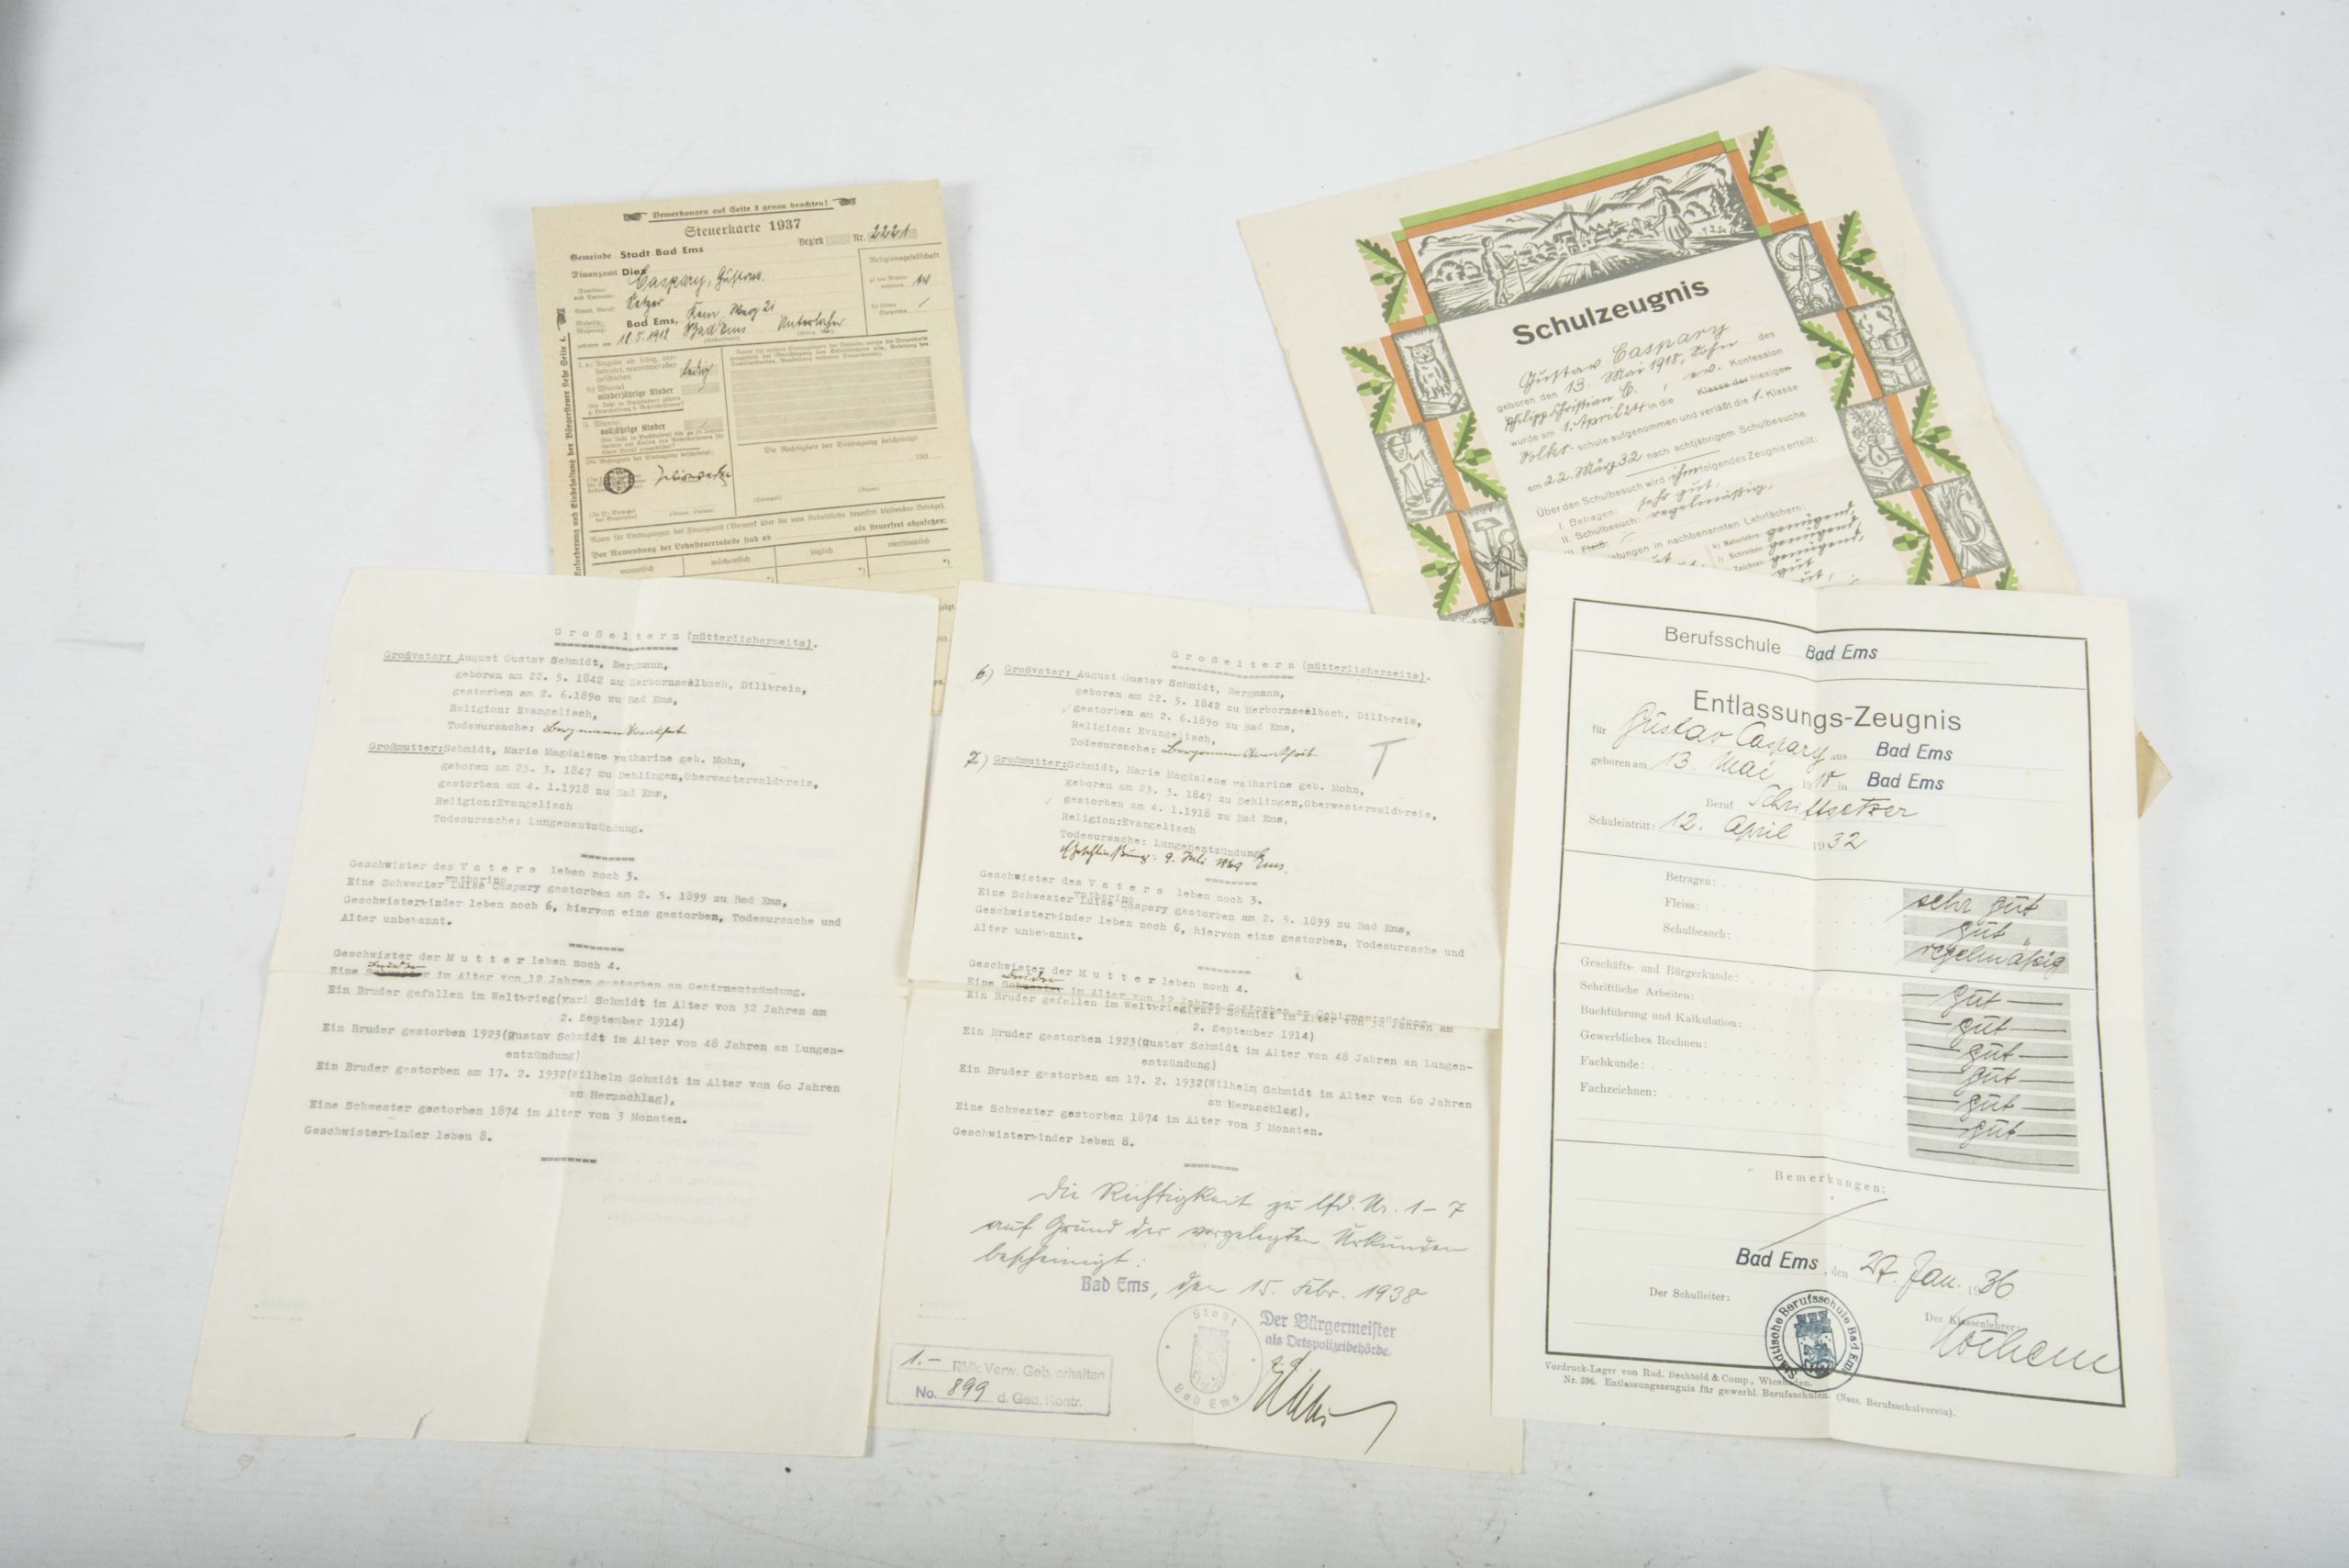 Bemerkungen auf Seite 3 genau beachten!
Steuerkarte 1937
Bezirk Nr. 2221
Gemeinde Stadt Bad Ems
Finanzamt Diez
Caspary, Gustav.
Setzer
Bad Ems,
Bad Ems Unterlahn
Religionsgesellschaft
ledig
minderjährige Kinder
volljährige Kinder
Die Richtigkeit der Eintragung bescheinigt:
Vor Anwendung der Lohnsteuertabelle sind als steuerfrei abzusetzen:
monatlich wöchentlich täglich vierstündlich
Schulzeugnis
Gustav Caspary
geboren den 13. Mai 1918, Sohn des
Philipp Christian C. , ev. Konfession
wurde am 1. April 24 in die Klasse der hiesigen
Volks-schule aufgenommen und verläßt die 1. Klasse
am 22. März 32 nach achtjährigem Schulbesuche.
Über den Schulbesuch wird ihm folgendes Zeugnis erteilt:
I. Betragen: sehr gut.
II. Schulbesuch: regelmäßig.
III. Fleiß:
in nachbenannten Lehrfächern:
Großeltern (mütterlicherseits).
Großvater: August Gustav Schmidt, Bergmann,
geboren am 22. 5. 1842 zu Herbornseelbach, Dillkreis,
gestorben am 2. 6.1890 zu Bad Ems,
Religion: Evangelisch,
Todesursache: Bergmannskrankheit
Großmutter:Schmidt, Marie Magdalene Katharine geb. Mohn,
geboren am 23. 3. 1847 zu Dehlingen,Oberwesterwaldkreis,
gestorben am 4. 1.1918 zu Bad Ems,
Religion:Evangelisch
Todesursache: Lungenentzündung.
Geschwister des Vaters leben noch 3.
Katharine
Eine Schwester Luise Caspary gestorben am 2. 5. 1899 zu Bad Ems,
Geschwisterkinder leben noch 6, hiervon eins gestorben, Todesursache und
Alter unbekannt.
Geschwister der Mutter leben noch 4.
Bruder
Eine Schwester im Alter von 12 Jahren gestorben an Gehirnentzündung.
Ein Bruder gefallen im Weltkrieg(Karl Schmidt im Alter von 32 Jahren am
2. September 1914)
Ein Bruder gestorben 1923(Gustav Schmidt im Alter von 48 Jahren an Lungen-
entzündung)
Ein Bruder gestorben am 17. 2. 1932(Wilhelm Schmidt im Alter von 60 Jahren
an Herzschlag),
Eine Schwester gestorben 1874 im Alter von 3 Monaten.
Geschwisterkinder leben 8.
Großeltern (mütterlicherseits).
6) Großvater: August Gustav Schmidt, Bergmann,
geboren am 22. 5. 1842 zu Herbornseelbach, Dillkreis,
gestorben am 2. 6.1890 zu Bad Ems,
Religion: Evangelisch,
Todesursache: Bergmannskrankheit
7) Großmutter:Schmidt, Marie Magdalene Katharine geb. Mohn,
geboren am 23. 3. 1847 zu Dehlingen,Oberwesterwaldkreis,
gestorben am 4. 1.1918 zu Bad Ems,
Religion:Evangelisch
Todesursache: Lungenentzündung
Eheschließung: 9. Juli 1869 Ems.
Geschwister des Vaters leben noch 3.
Katharine
Eine Schwester Luise Caspary gestorben am 2. 5. 1899 zu Bad Ems,
Geschwisterkinder leben noch 6, hiervon eins gestorben, Todesursache und
Alter unbekannt.
Geschwister der Mutter leben noch 4.
Bruder
Eine Schwester im Alter von 12 Jahren gestorben an Gehirnentzündung.
Ein Bruder gefallen im Weltkrieg(Karl Schmidt im Alter von 32 Jahren am
2. September 1914)
Ein Bruder gestorben 1923(Gustav Schmidt im Alter von 48 Jahren an Lungen-
entzündung)
Ein Bruder gestorben am 17. 2. 1932(Wilhelm Schmidt im Alter von 60 Jahren
an Herzschlag),
Eine Schwester gestorben 1874 im Alter von 3 Monaten.
Geschwisterkinder leben 8.
Die Richtigkeit zu lfd. Nr. 1-7
auf Grund der vorgelegten Urkunden
bescheinigt:
Bad Ems, den 15. Febr. 1938
Der Bürgermeister
als Ortspolizeibehörde.
Stadt Bad Ems
1.- RMk Verw. Geb. erhalten
No. 899 d. Geb. Kontr.
Berufsschule Bad Ems
Entlassungs-Zeugnis
für Gustav Caspary aus Bad Ems
geboren am 13. Mai 1918 in Bad Ems
Beruf Schriftsetzer
Schuleintritt: 12. April 1932
Betragen: sehr gut
Fleiss: gut
Schulbesuch: regelmäßig
Geschäfts- und Bürgerkunde: gut
Schriftliche Arbeiten: gut
Buchführung und Kalkulation: gut
Gewerbliches Rechnen: gut
Fachkunde: gut
Fachzeichnen: gut
Bemerkungen:
Bad Ems, den 27. Jan. 1936
Der Schulleiter:
Der Klassenlehrer:
Städtische Berufsschule Bad Ems
Vordruck-Lager von Rud. Bechtold & Comp., Wiesbaden.
Nr. 396. Entlassungszeugnis für gewerbl. Berufsschulen. (Nass. Berufsschulverein).